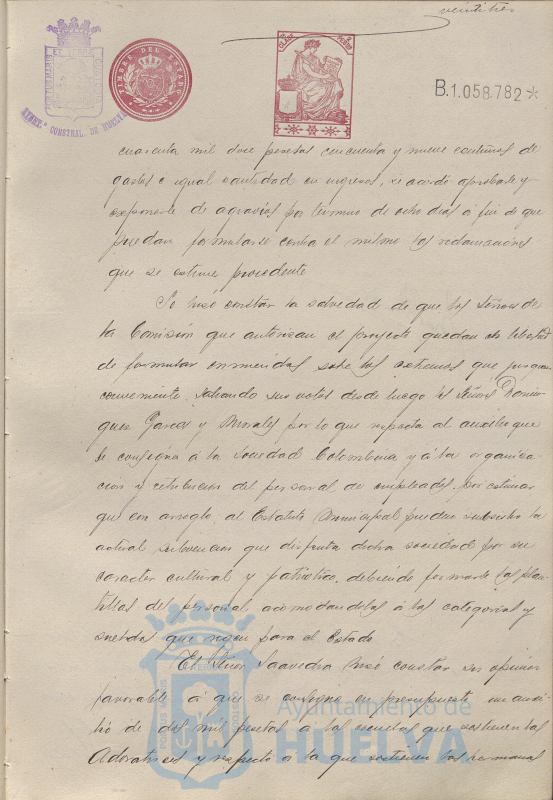 veintitres
TIMBRE DEL ESTADO
B.1.058.782*
AYNT.º CONSTNAL. DE HUELVA
cuarenta mil doce pesetas cincuenta y nueve centimos de
gastos e igual cantidad en ingresos, se acordó aprobarle y
exponerle de agravios por término de ocho dias á fin de que
puedan formularse contra el mismo las reclamaciones
que se estime procedente
Se hizo constar la salvedad de que los Señores de
la Comisión que autorizan el proyecto quedan en libertad
de formular enmiendas sobre los extremos que juzguen
conveniente, salvando sus votos desde luego los Señores Domin-
guez Garces y Morales por lo que respecta al auxilio que
se consigna á la Sociedad Colombina y á la organiza-
cion y retribucion del personal de empleados, por estimar
que con arreglo al Estatuto Municipal puede subsistir la
actual subvencion que disfruta dicha sociedad por su
caracter cultural y patriotico, debiendo formarse las plan-
tillas del personal acomodandolas á las categorias y
sueldos que rigen para el Estado
El Señor Saavedra hizo constar su opinion
favorable á que se consigne en presupuesto un auxi-
lio de dos mil pesetas á las escuelas que sostienen las
Adoratrices y respecto á la que sostienen las hermanas
Ayuntamiento de
HUELVA